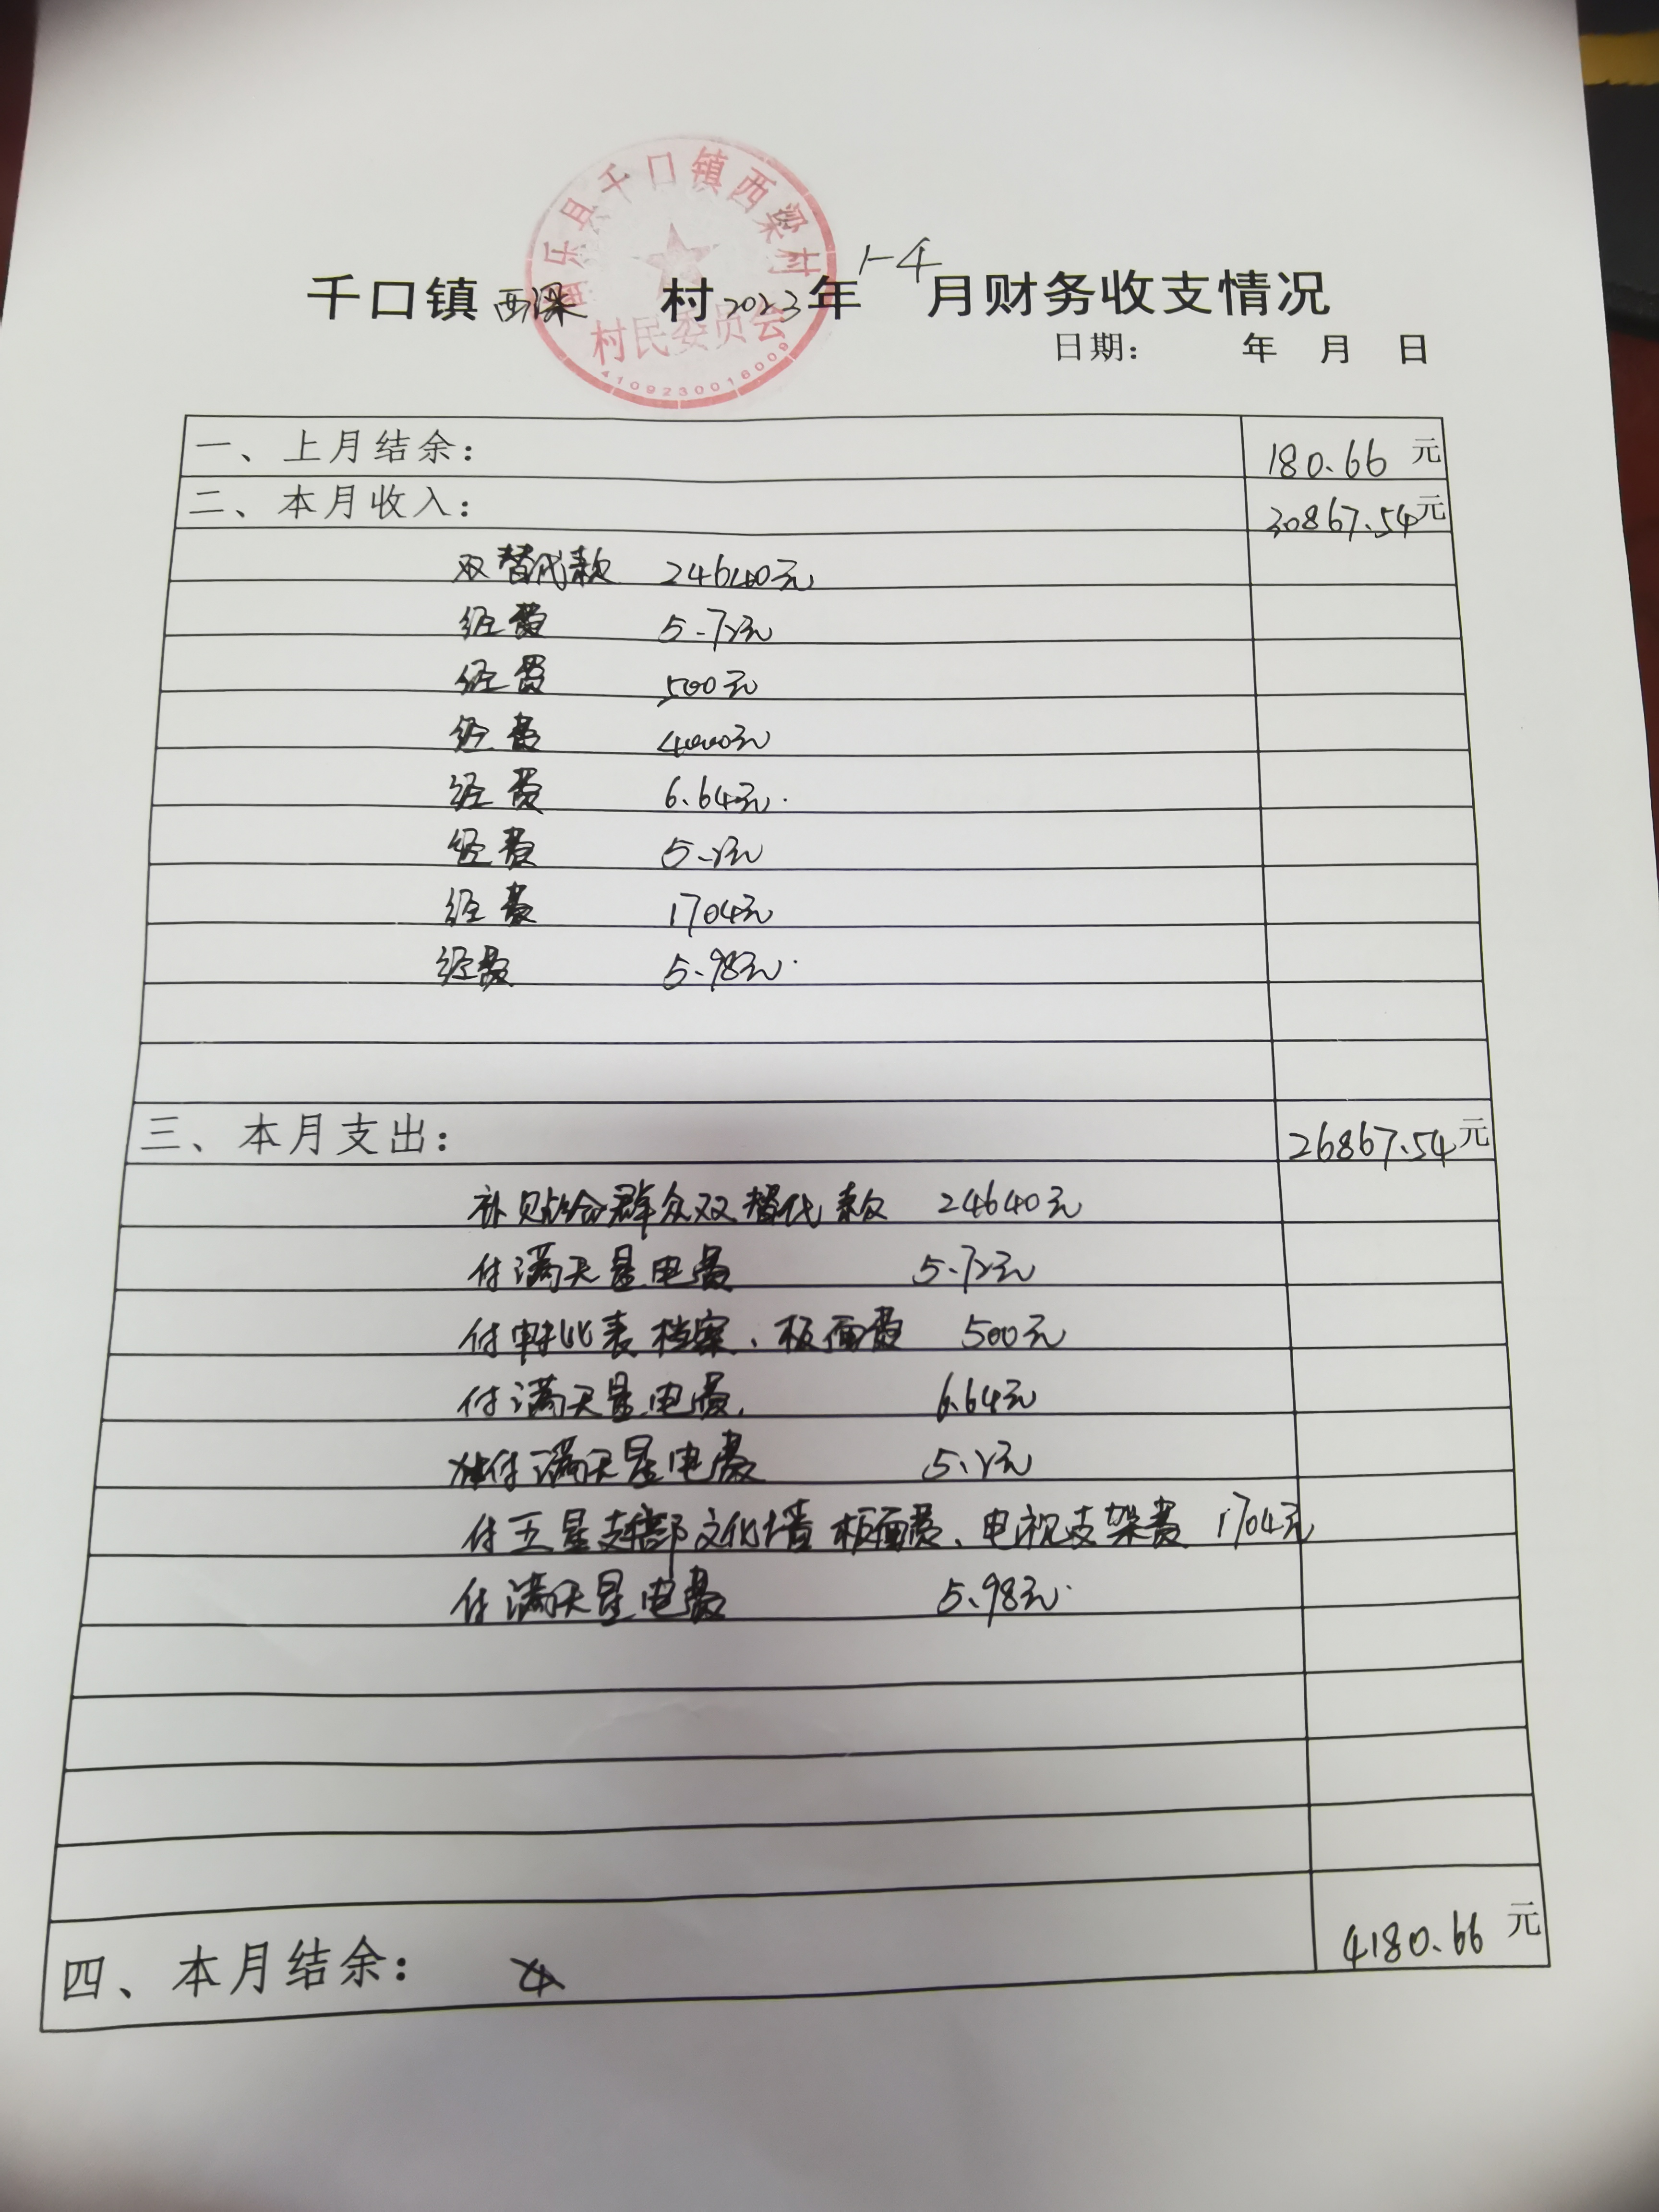 南乐县千口镇西梁村
村民委员会
4109230016009
千口镇西梁村2023年1-4月财务收支情况
日期： 年 月 日
一、上月结余： 180.66元
二、本月收入： 30867.54元
双替代款 24640元
经费 5.72元
经费 500元
经费 4000元
经费 6.64元
经费 5.2元
经费 1704元
经费 5.98元
三、本月支出： 26867.54元
补贴给群众双替代款 24640元
付满天星电费 5.72元
付申批表档案、板面费 500元
付满天星电费 6.64元
付满天星电费 5.2元
付五星支部文化墙板面费、电视支架费 1704元
付满天星电费 5.98元
四、本月结余： 4180.66元